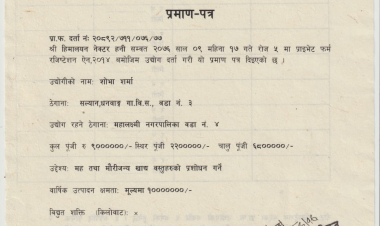 प्रमाण-पत्र
प्रा.फ. दर्ता नं: २०८९२/५११/०७६/७७
श्री हिमालयन नेक्टर हनी सम्वत २०७६ साल ०९ महिना १७ गते रोज ५ मा प्राइभेट फर्म
रजिष्टेशन ऐन,२०१४ बमोजिम उद्योग दर्ता गरी यो प्रमाण पत्र दिइएको छ ।
उद्योगीको नाम: शोभा शर्मा
ठेगाना: सल्यान,धनवाङ गा.वि.स., वडा नं. ३
उद्योग रहने ठेगाना: महालक्ष्मी नगरपालिका वडा नं. ४
कुल पुंजी रु ९००००००/- स्थिर पुंजी २२०००००/- चालु पुंजी ६८०००००/-
उद्देश्य: मह तथा मौरीजन्य खाद्य वस्तुहरुको प्रशोधन गर्ने
वार्षिक उत्पादन क्षमता: मूल्यमा १०००००००/-
विद्युत शक्ति (किलोवाट): ×